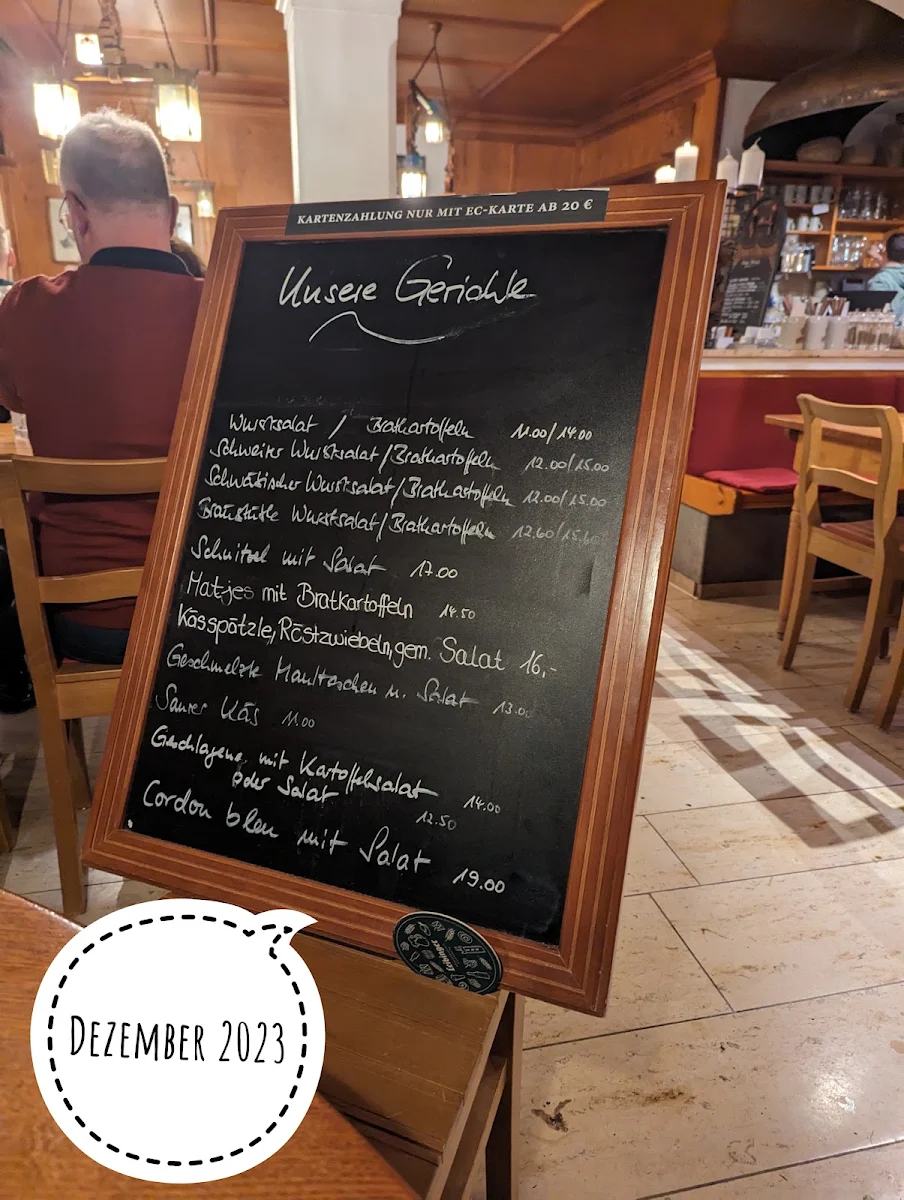 KARTENZAHLUNG NUR MIT EC-KARTE AB 20 €
Unsere Gerichte
Wurstsalat / Bratkartoffeln 11.00/14.00
Schweizer Wurstsalat/Bratkartoffeln 12.00/15.00
Schwäbischer Wurstsalat/Bratkartoffeln 12.00/15.00
Bräustüble Wurstsalat/Bratkartoffeln 12.60/15.60
Schnitzel mit Salat 17.00
Matjes mit Bratkartoffeln 14.50
Kässpätzle, Röstzwiebeln, gem. Salat 16,-
Geschmelzte Maultaschen m. Salat 13.00
Saurer Käs 11.00
Geschlagene mit Kartoffelsalat 14.00
oder Salat 12.50
Cordon bleu mit Salat 19.00
DEZEMBER 2023